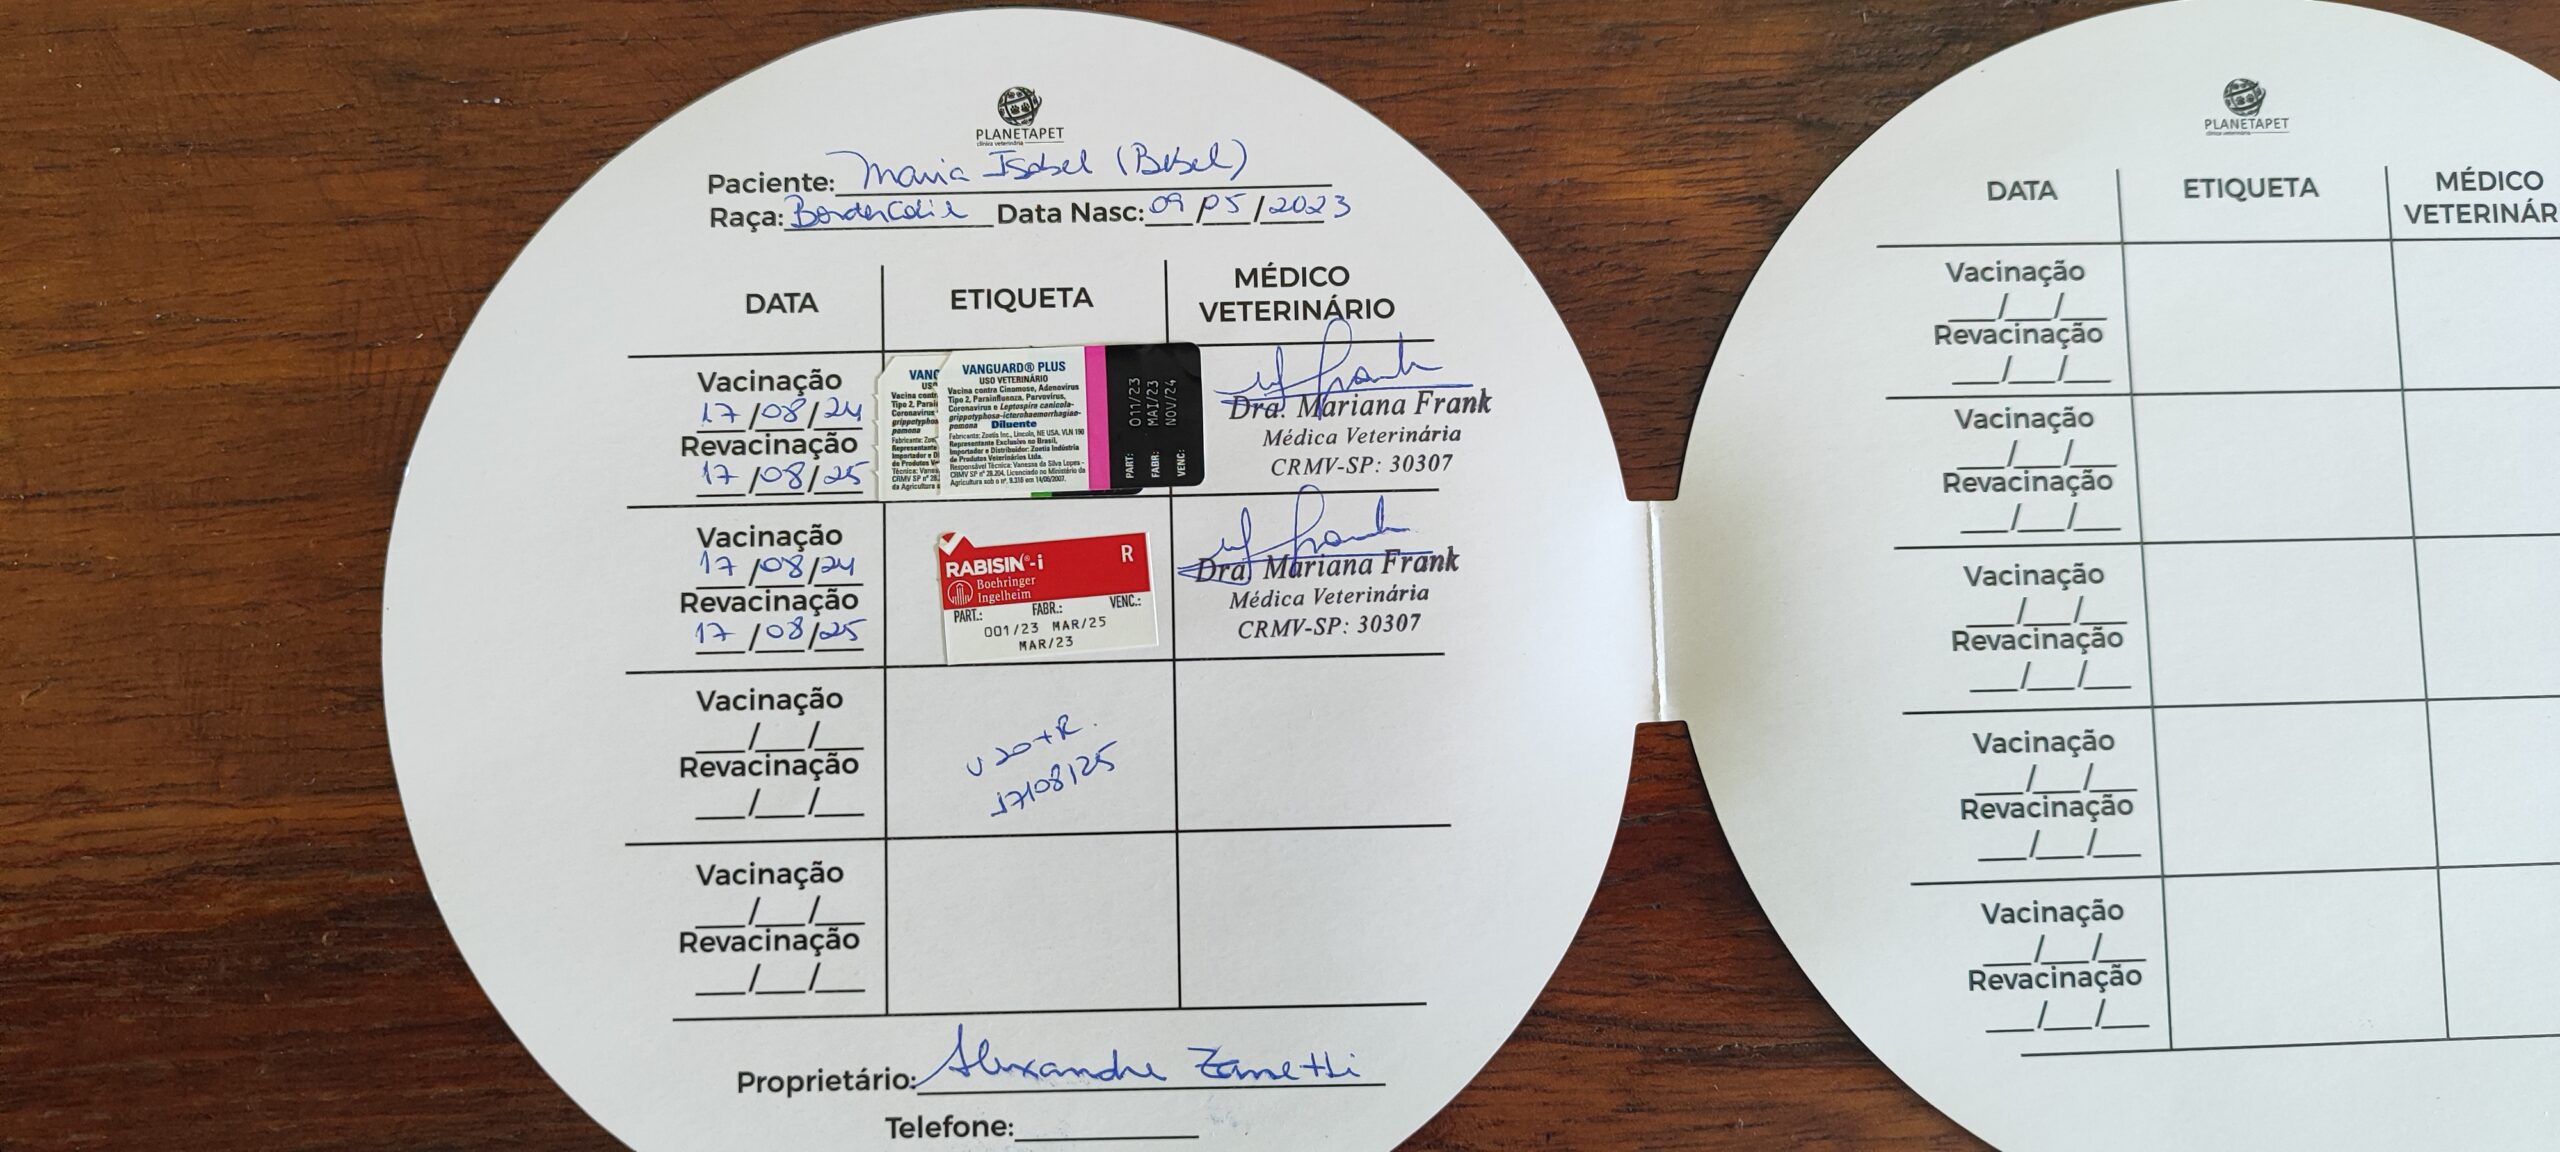 PLANETAPET
clínica veterinária
Paciente: Maria Isabel (Bebel)
Raça: Border Colie Data Nasc: 09/05/2023
DATA ETIQUETA MÉDICO VETERINÁRIO
Vacinação
17/08/24
Revacinação
17/08/25
VANGUARD® PLUS
USO VETERINÁRIO
Vacina contra Cinomose, Adenovirus
Tipo 2, Parainfluenza, Parvovirus,
Coronavirus e Leptospira canicola-
grippotyphosa-icterohaemorrhagiae-
pomona Diluente
Fabricante: Zoetis Inc., Lincoln, NE USA. VLN 190
Representante Exclusivo no Brasil,
Importador e Distribuidor: Zoetis Indústria
de Produtos Veterinários Ltda.
Responsável Técnica: Vanessa da Silva Lopes -
CRMV SP nº 28.204. Licenciado no Ministério da
Agricultura sob o nº. 9.316 em 14/06/2007.
PART: 011/23
FABR: MAI/23
VENC: NOV/24
Dra. Mariana Frank
Médica Veterinária
CRMV-SP: 30307
Vacinação
17/08/24
Revacinação
17/08/25
RABISIN®-i R
Boehringer
Ingelheim
PART.: FABR.: VENC.:
001/23 MAR/25
MAR/23
Dra. Mariana Frank
Médica Veterinária
CRMV-SP: 30307
Vacinação
__/__/__
Revacinação
__/__/__
17/08/25
Vacinação
__/__/__
Revacinação
__/__/__
Proprietário: Alexandre Zanetti
Telefone:
PLANETAPET
clínica veterinária
DATA ETIQUETA MÉDICO
VETERINÁR
Vacinação
__/__/__
Revacinação
__/__/__
Vacinação
__/__/__
Revacinação
__/__/__
Vacinação
__/__/__
Revacinação
__/__/__
Vacinação
__/__/__
Revacinação
__/__/__
Vacinação
__/__/__
Revacinação
__/__/__